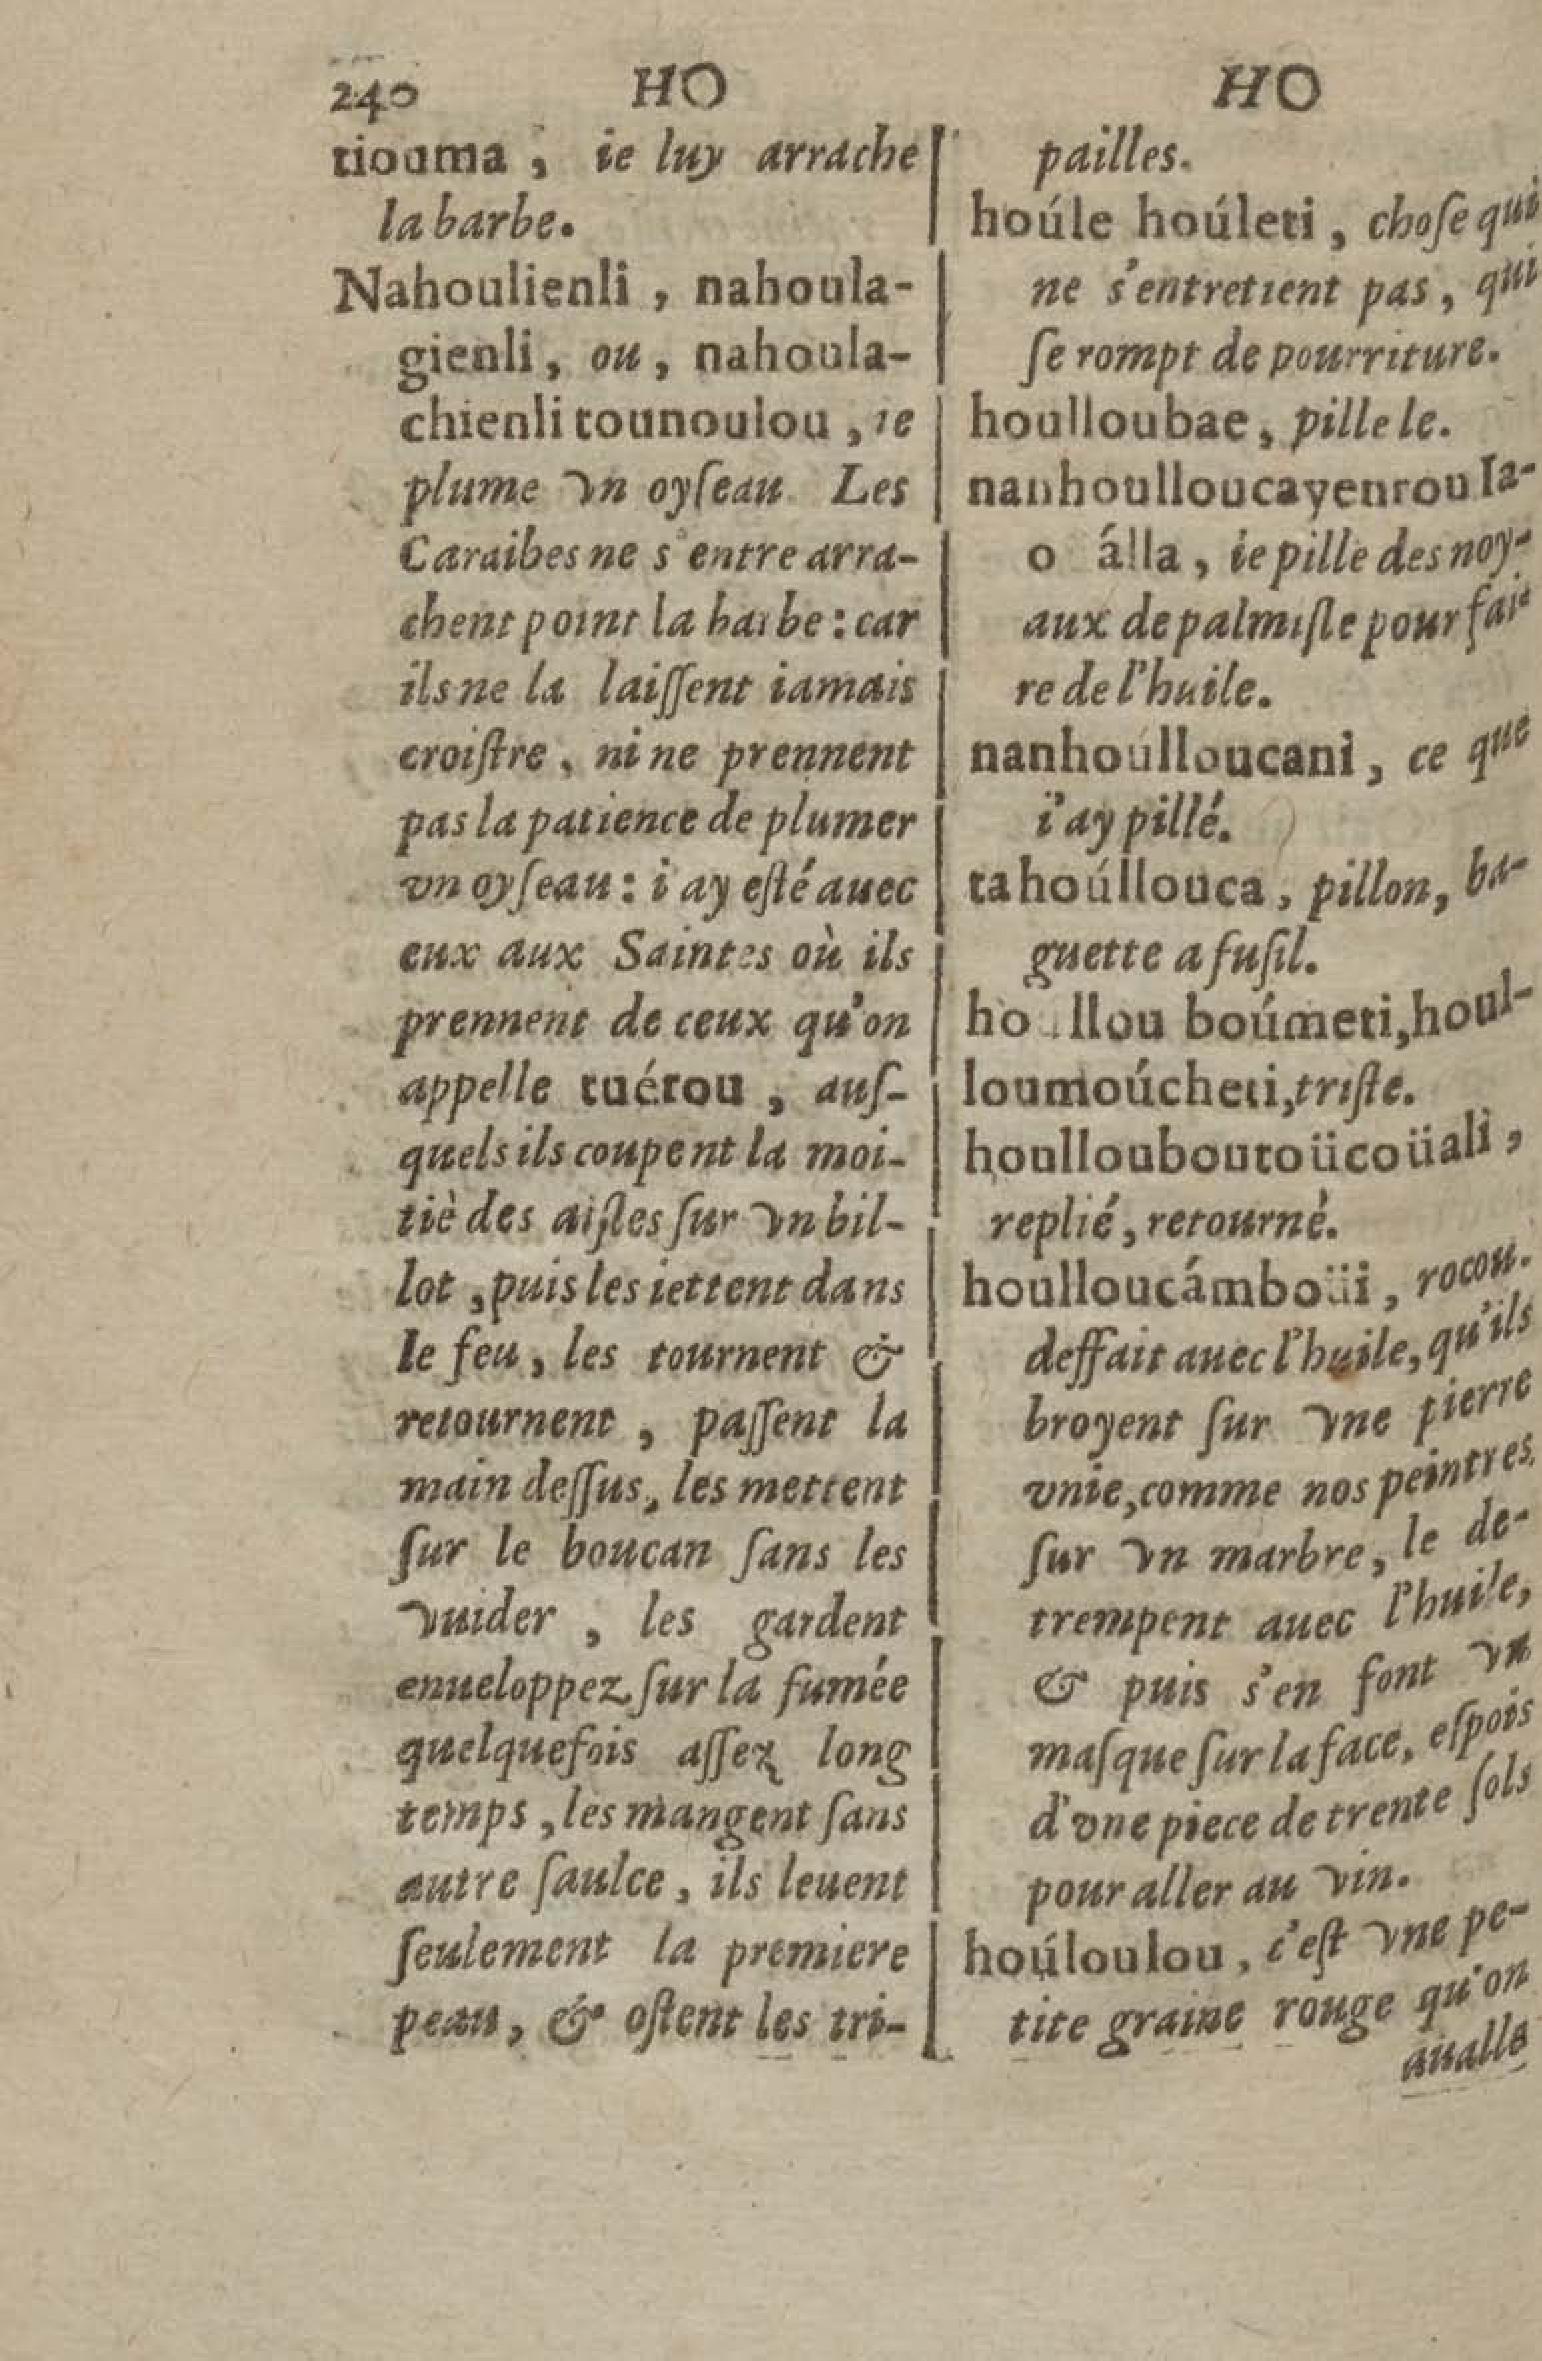 240 HO HO
tiouma, ie luy arrache
la barbe.
Nahoulienli, nahoula-
gienli, ou, nahoula-
chienli tounoulou, ie
plume vn oyſeau Les
Caraibes ne s'entre arra-
chent point la barbe : car
ils ne la laiſſent iamais
croiſtre, ni ne prennent
pas la patience de plumer
vn oyſeau : i'ay eſté auec
eux aux Saintes où ils
prennent de ceux qu'on
appelle tuérou, auſ-
quels ils coupent la moi-
tiè des aiſles ſur vn bil-
lot, puis les iettent dans
le feu, les tournent &
retournent, paſſent la
main deſſus, les mettent
ſur le boucan ſans les
vuider, les gardent
enueloppez ſur la fumée
quelquefois aſſez long
temps, les mangent ſans
autre ſaulce, ils leuent
ſeulement la premiere
peau, & oſtent les tri-
pailles.
houle houleti, choſe qui
ne s'entretient pas, qui
ſe rompt de pourriture.
houlloubae, pille le.
nanhoulloucayenrou la-
o álla, ie pille des noy-
aux de palmiſte pour fai-
re de l'huile.
nanhoulloucani, ce que
i'ay pillé.
tahoúllouca, pillon, ba-
guette a fuſil.
ho llou boúmeti, houl-
loumoúcheti, triſte.
houllouboutoücoüali,
replié, retourné.
houlloucámboüi, rocou.
deffait auec l'huile, qu'ils
broyent ſur vne pierre
vnie, comme nos peintres
ſur vn marbre, le de-
trempent auec l'huile,
& puis s'en font vn
maſque ſur la face, eſpois
d'vne piece de trente ſols
pour aller au vin.
houloulou, c'eſt vne pe-
tite graine rouge qu'on
aualle